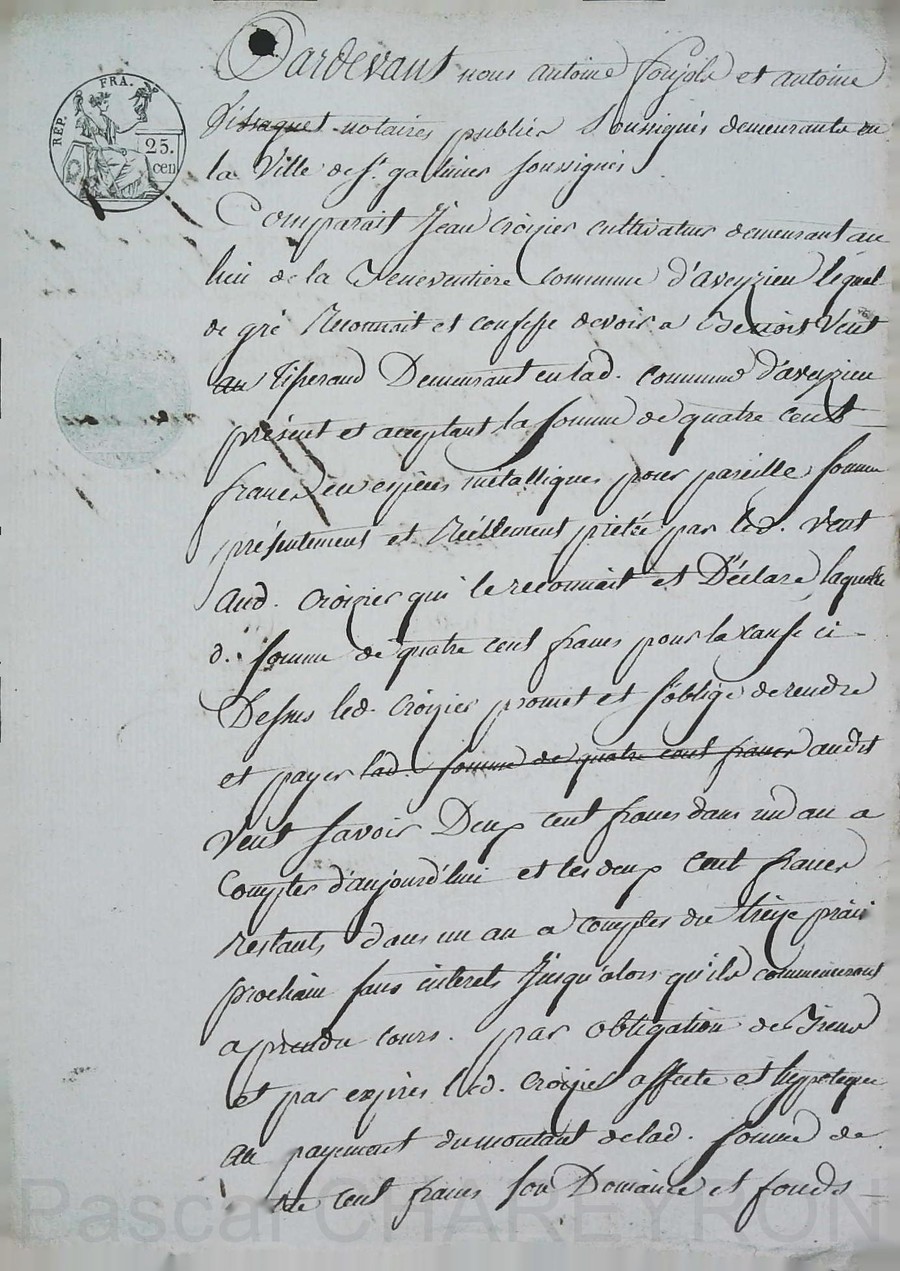 REP. FRA.
25.
cen
Pardevant nous antoine Poujols et antoine
notaires publics Soussignés demeurants en
la Ville de St. galmier soussignés
Comparait Jean croizier cultivateur demeurant au
lieu de la Commune d'aveyzieu lequel
de gré Reconnait et confesse devoir a Benoit Vent
au Tisserand Demeurant en lad. commune d'aveyzieu
présent et acceptant la somme de quatre cent
francs en espèces métalliques pour pareille somme
présentement et Réellement pretée par led. Vent
aud. croizier qui le reconnait et Déclare laquelle
d. somme de quatre cent francs pour la cause ci
Dessus led. croizier promet et s'oblige de rendre
et payer lad. somme de quatre cent francs audit
Vent savoir Deux cent francs dans un an a
Compter d'aujourd'hui et les deux cent francs
Restants dans un an a compter du treize prairi
prochain sans interets Jusqu'alors qu'ils commenceront
a prendre cours. par obligation de Biens
et par exprès led. croizier affecte et hypoteque
au payement du montant de lad. somme de
cent francs son Domaine et fonds
Pascal CHAREYRON